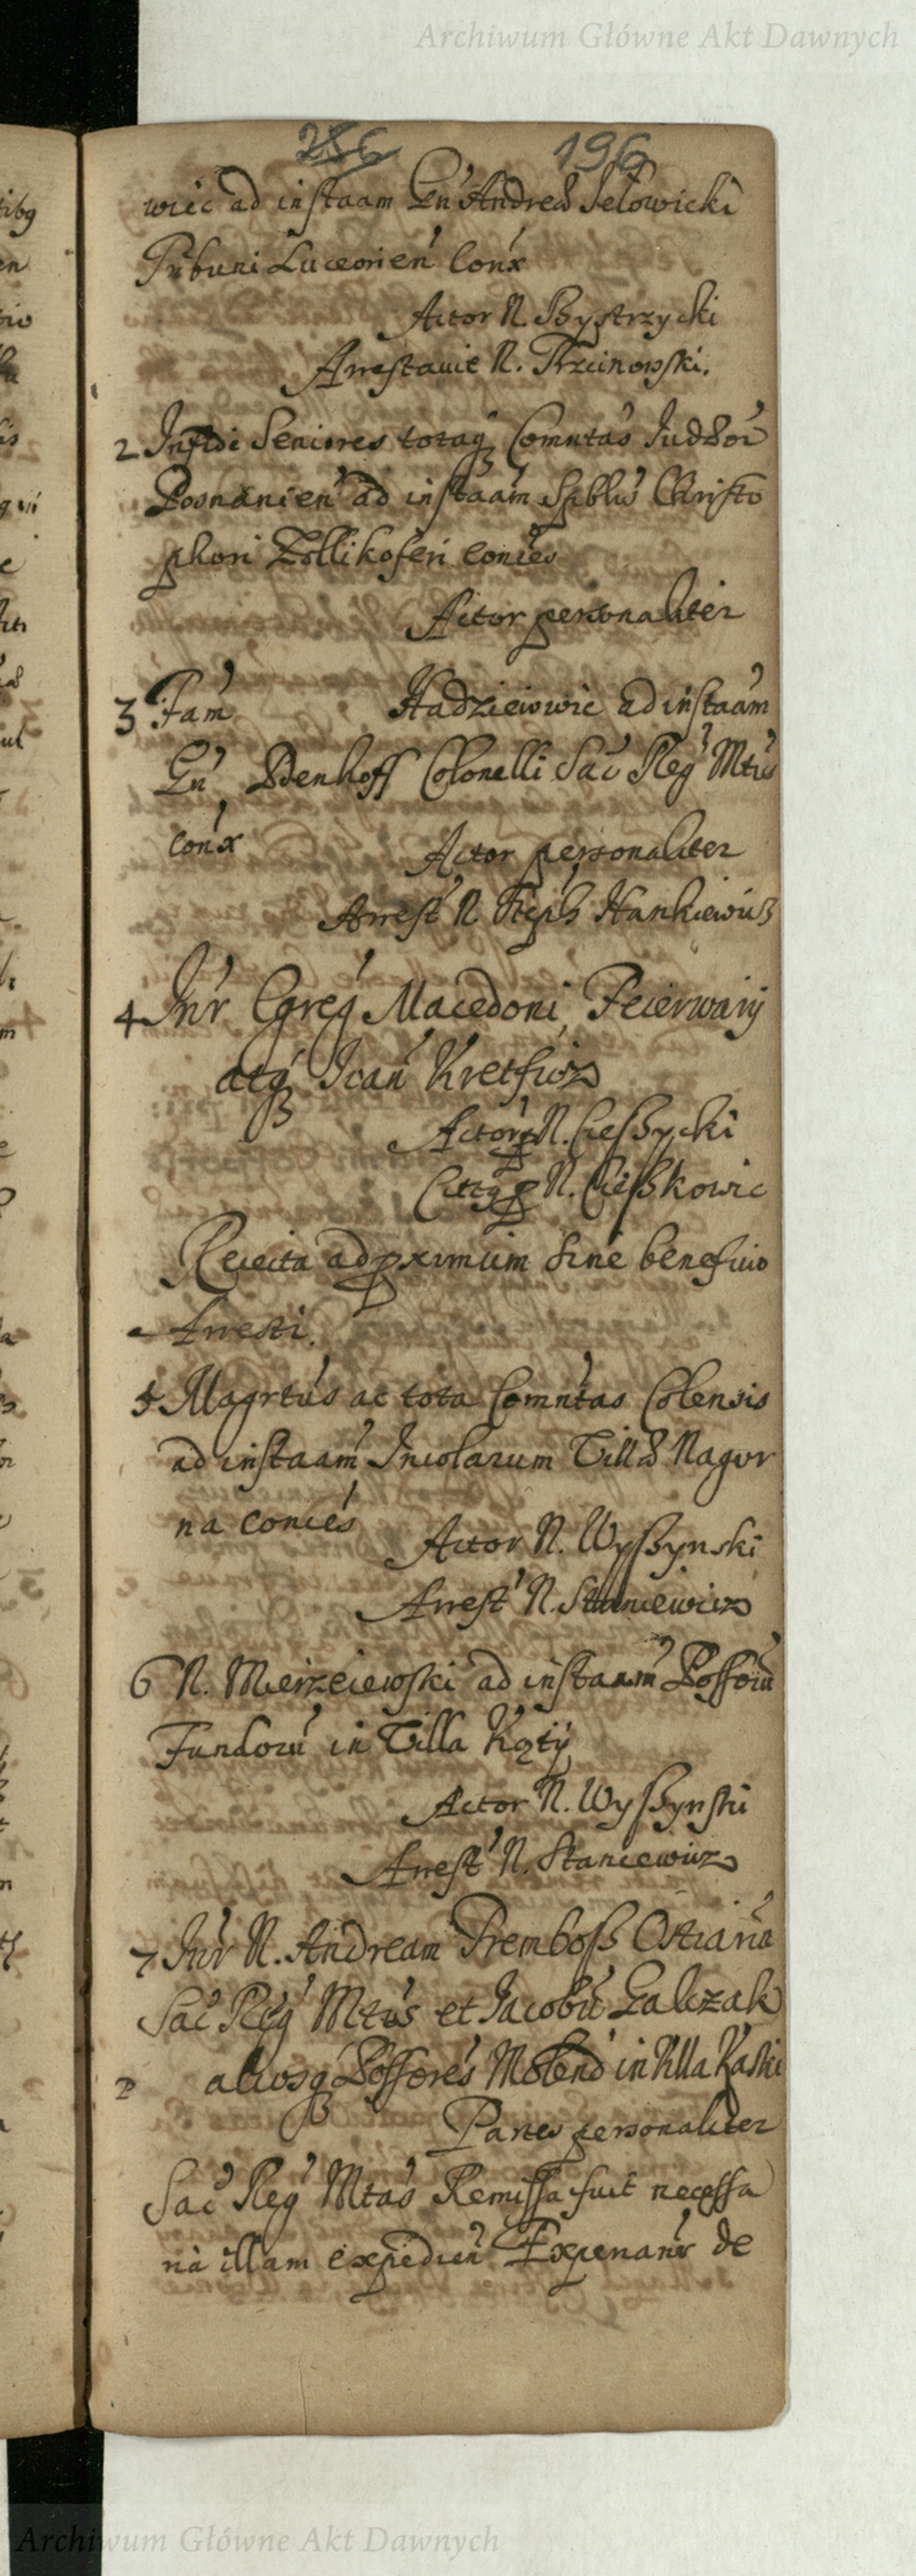 Archiwum Główne Akt Dawnych
256 196
wiec ad instaam Gn' Andreæ Jełowicki
Tribuni Luceorien' Con'x
Actor N. Bystrzycki
Arrestavit N. Trzcinowski.
2 Infidi Seniores totaq3 Comntas Judæor'
Posnanien' ad instaam Spblis Christo
phori Zollikoferi conies
Actor personaliter
3 Fam' Hadziewowic ad instaam
Gn' Denhoff Colonelli Sac' Reg' Mtis
con'x
Actor personaliter
Arrest' N Steph Hankiewicz
4 In'r Egreg' Macedoni Feierwary
atq3 Joan' Kretficz
Actor' N. Cieszycki
N. Cieszkowic
Reiecta ad pximum sine beneficio
Arresti.
5 Magrtus ac tota Comntas Colensis
ad instaam Incolarum Villæ Nagor
na conies
Actor N. Wyszynski
Arrest' N. Stancewicz
6 N. Mierzeiewski ad instaam Possorū
Fundorū in Villa Kąty
Actor N. Wyszynski
Arrest' N. Stancewicz
7 In'r N. Andream Prembosz
Sac' Reg' Mtis et Jacobū Galczak
aliosq3 Possores Molend' in Villa Kaski
Partes personaliter
Sac' Reg' Mtas Remissa fuit necessa
ria illam expedien' de
Archiwum Główne Akt Dawnych